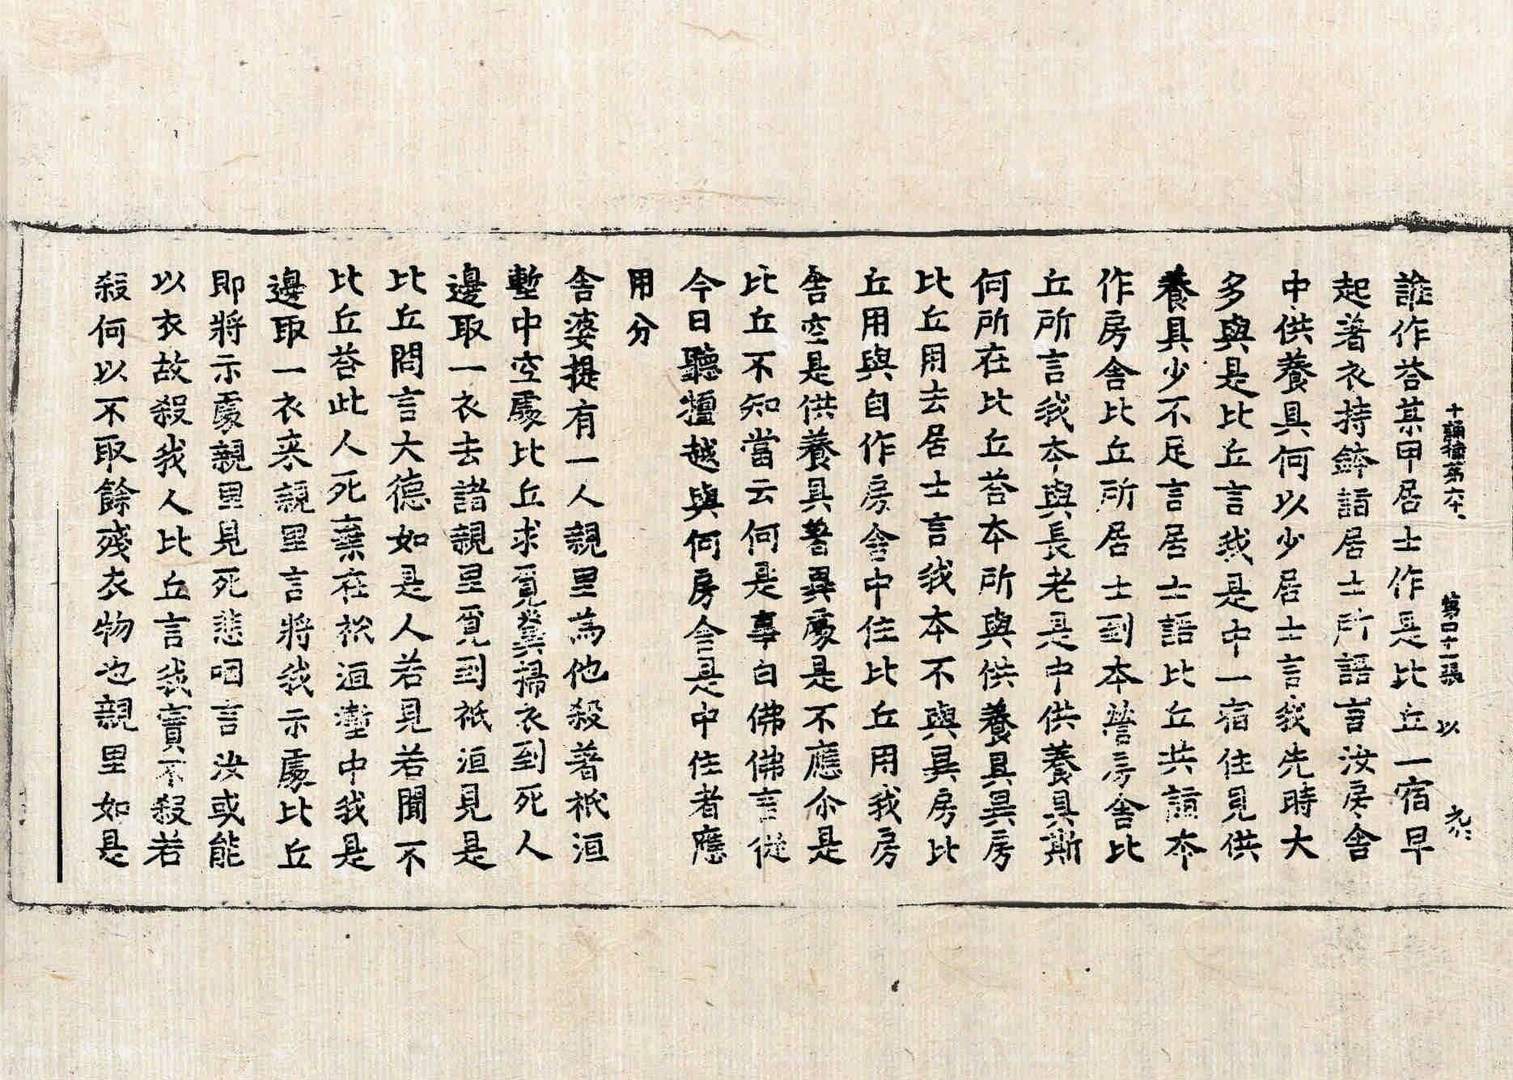 十誦律第六十 第四十一張 以
誰作荅某甲居士作是比丘一宿早
起著衣持鉢詣居士所語言汝房舍
中供養具何以少居士言我先時大
多與是比丘言我是中一宿住見供
養具少不足言居士語比丘共詣本
作房舍比丘所居士到本營房舍比
丘所言我本與長老是中供養具斯
何所在比丘荅本所與供養具異房
比丘用去居士言我本不與異房比
丘用與自作房舍中住比丘用我房
舍空是供養具著異處是不應尒是
比丘不知當云何是事白佛佛言從
今日聽擅越與何房舍是中住者應
用分
舍婆提有一人親里為他殺著祇洹
壍中空處比丘求覓糞掃衣到死人
邊取一衣去諸親里覓到祇洹見是
比丘問言大德如是人若見若聞不
比丘荅此人死棄在祇洹壍中我是
邊取一衣来親里言將我示處比丘
即將示處親里見死悲咽言汝或能
以衣故殺我人比丘言我實不殺若
殺何以不取餘殘衣物也親里如是